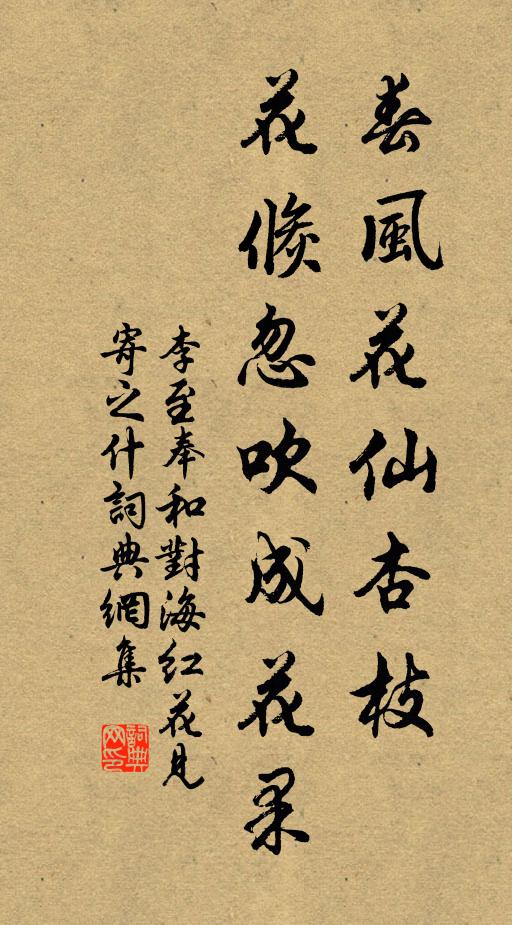 春風花仙杏枝
花倐忽吹成花果
李至奉和對海红花見
寄之什詞典網集
詞典
网印